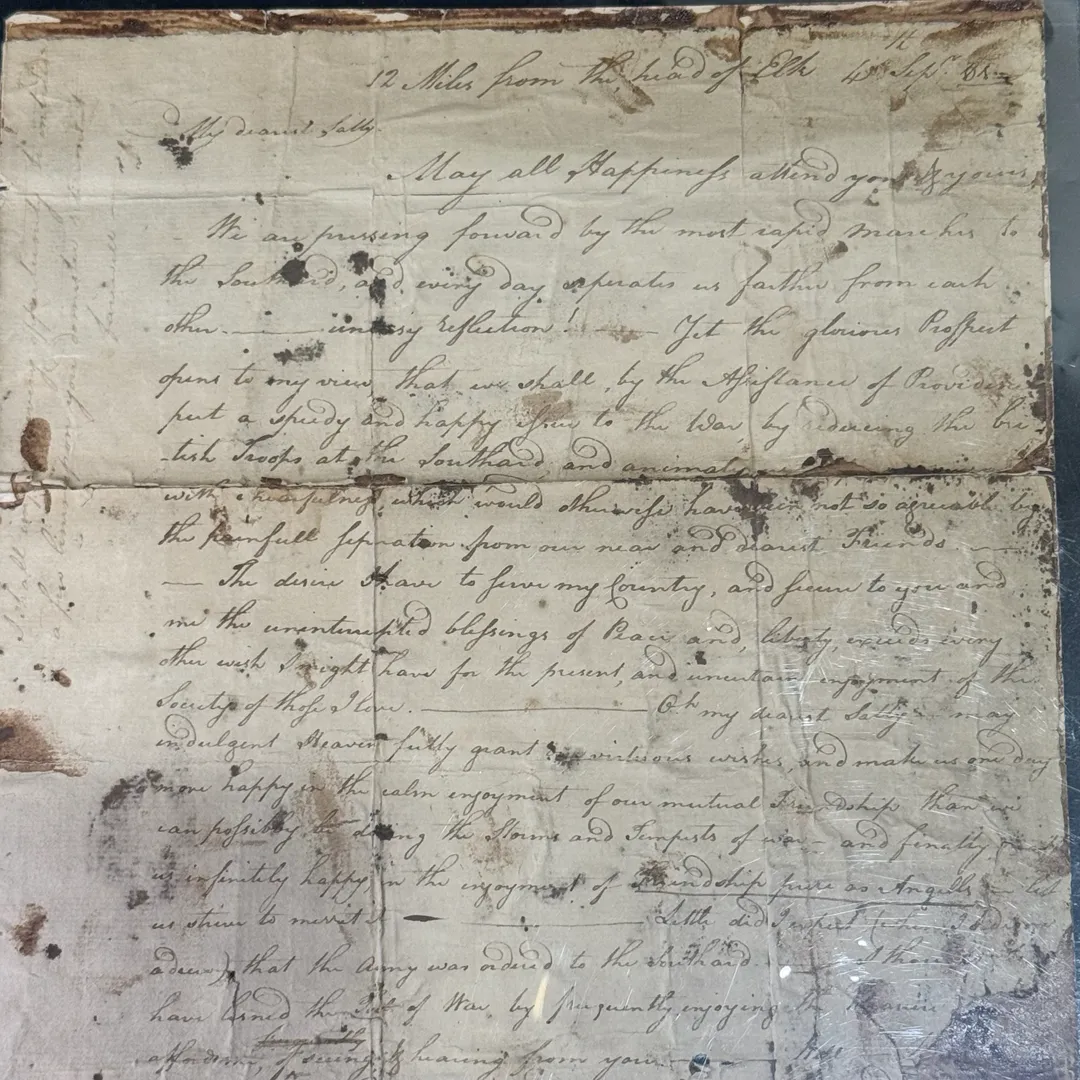 12 Miles from the head of Elk 4th Sepr. 81
My dearest Sally.
May all Happiness attend you & yours
We are pressing forward by the most rapid marches to
the Southard, and every day seperates us farther from each
other. — uneasy reflection! — Yet the glorious Prospect
opens to my view, that we shall, by the Assistance of Providence
put a speedy and happy issue to the War, by reducing the Bri-
tish Troops at the Southard, and
with chearfulness, which would otherwise have been not so agreeable by
the painfull seperation from our near and dearest Friends —
— The desire I have to serve my Country, and secure to you and
me the uninterrupted blessings of Peace and liberty, exceeds every
other wish I might have for the present, and uncertain enjoyment of the
Society of those I love. — Oh my dearest Sally — may
indulgent Heaven fully grant virtuous wishes, and make us one day
more happy in the calm enjoyment of our mutual Friendship than we
can possibly be during the Storms and Tempests of war — and finally
us infinitely happy in the enjoyment of Friendship pure as Angells — let
us strive to merrit it — Little did I expect (when I
adieu) that the Army was ordered to the Southard. — I
have lessned the of War by frequently enjoying the
of seeing & hearing from you —